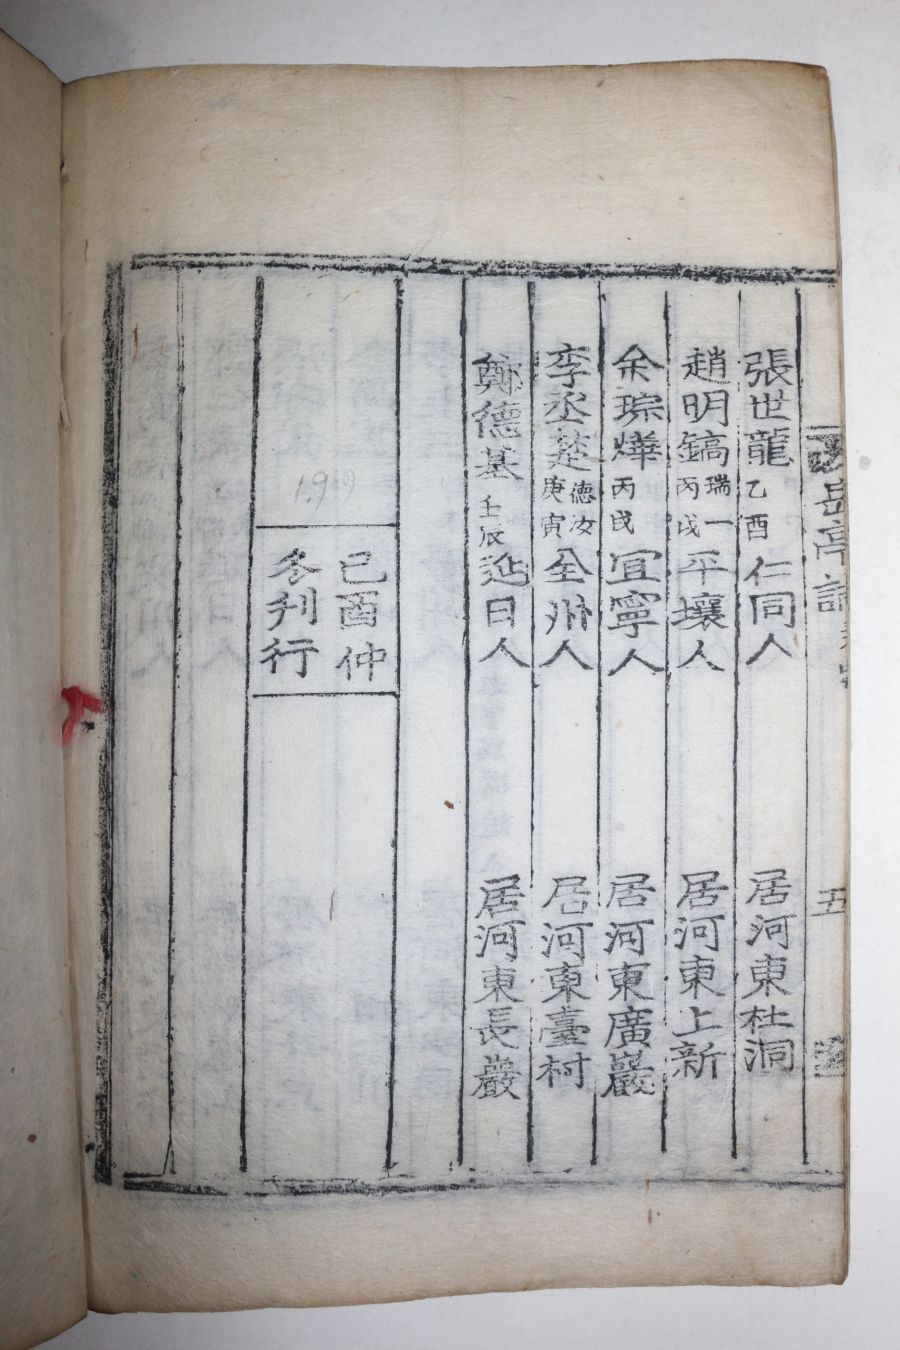 岳亭詩
五
張世龍 乙酉 仁同人 居河東杜洞
趙明鎬 瑞一 丙戌 平壤人 居河東上新
余琮燁 丙戌 宜寧人 居河東廣巖
李丞楚 德汝 庚寅 全州人 居河東臺柯
鄭德基 壬辰 延日人 居河東長巖
己酉仲
冬刋行